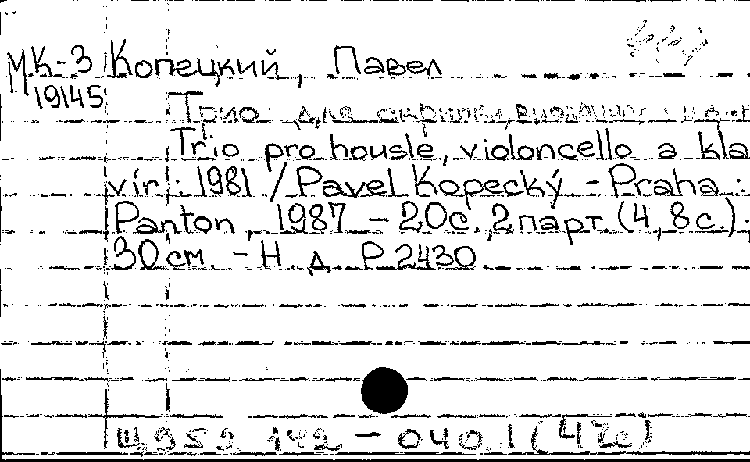 МК-3 Копецкий, Павел
19145
Трио для скрипки, виолонч. и ф-п
Trio pro housle, violoncello a kla
vír : 1981 / Pavel Kopecký - Praha :
Panton, 1987 - 20с., 2 парт. (4, 8с.);
30 см. - Н. д. P 2430
Щ952 142 - 040.1 (4Че)